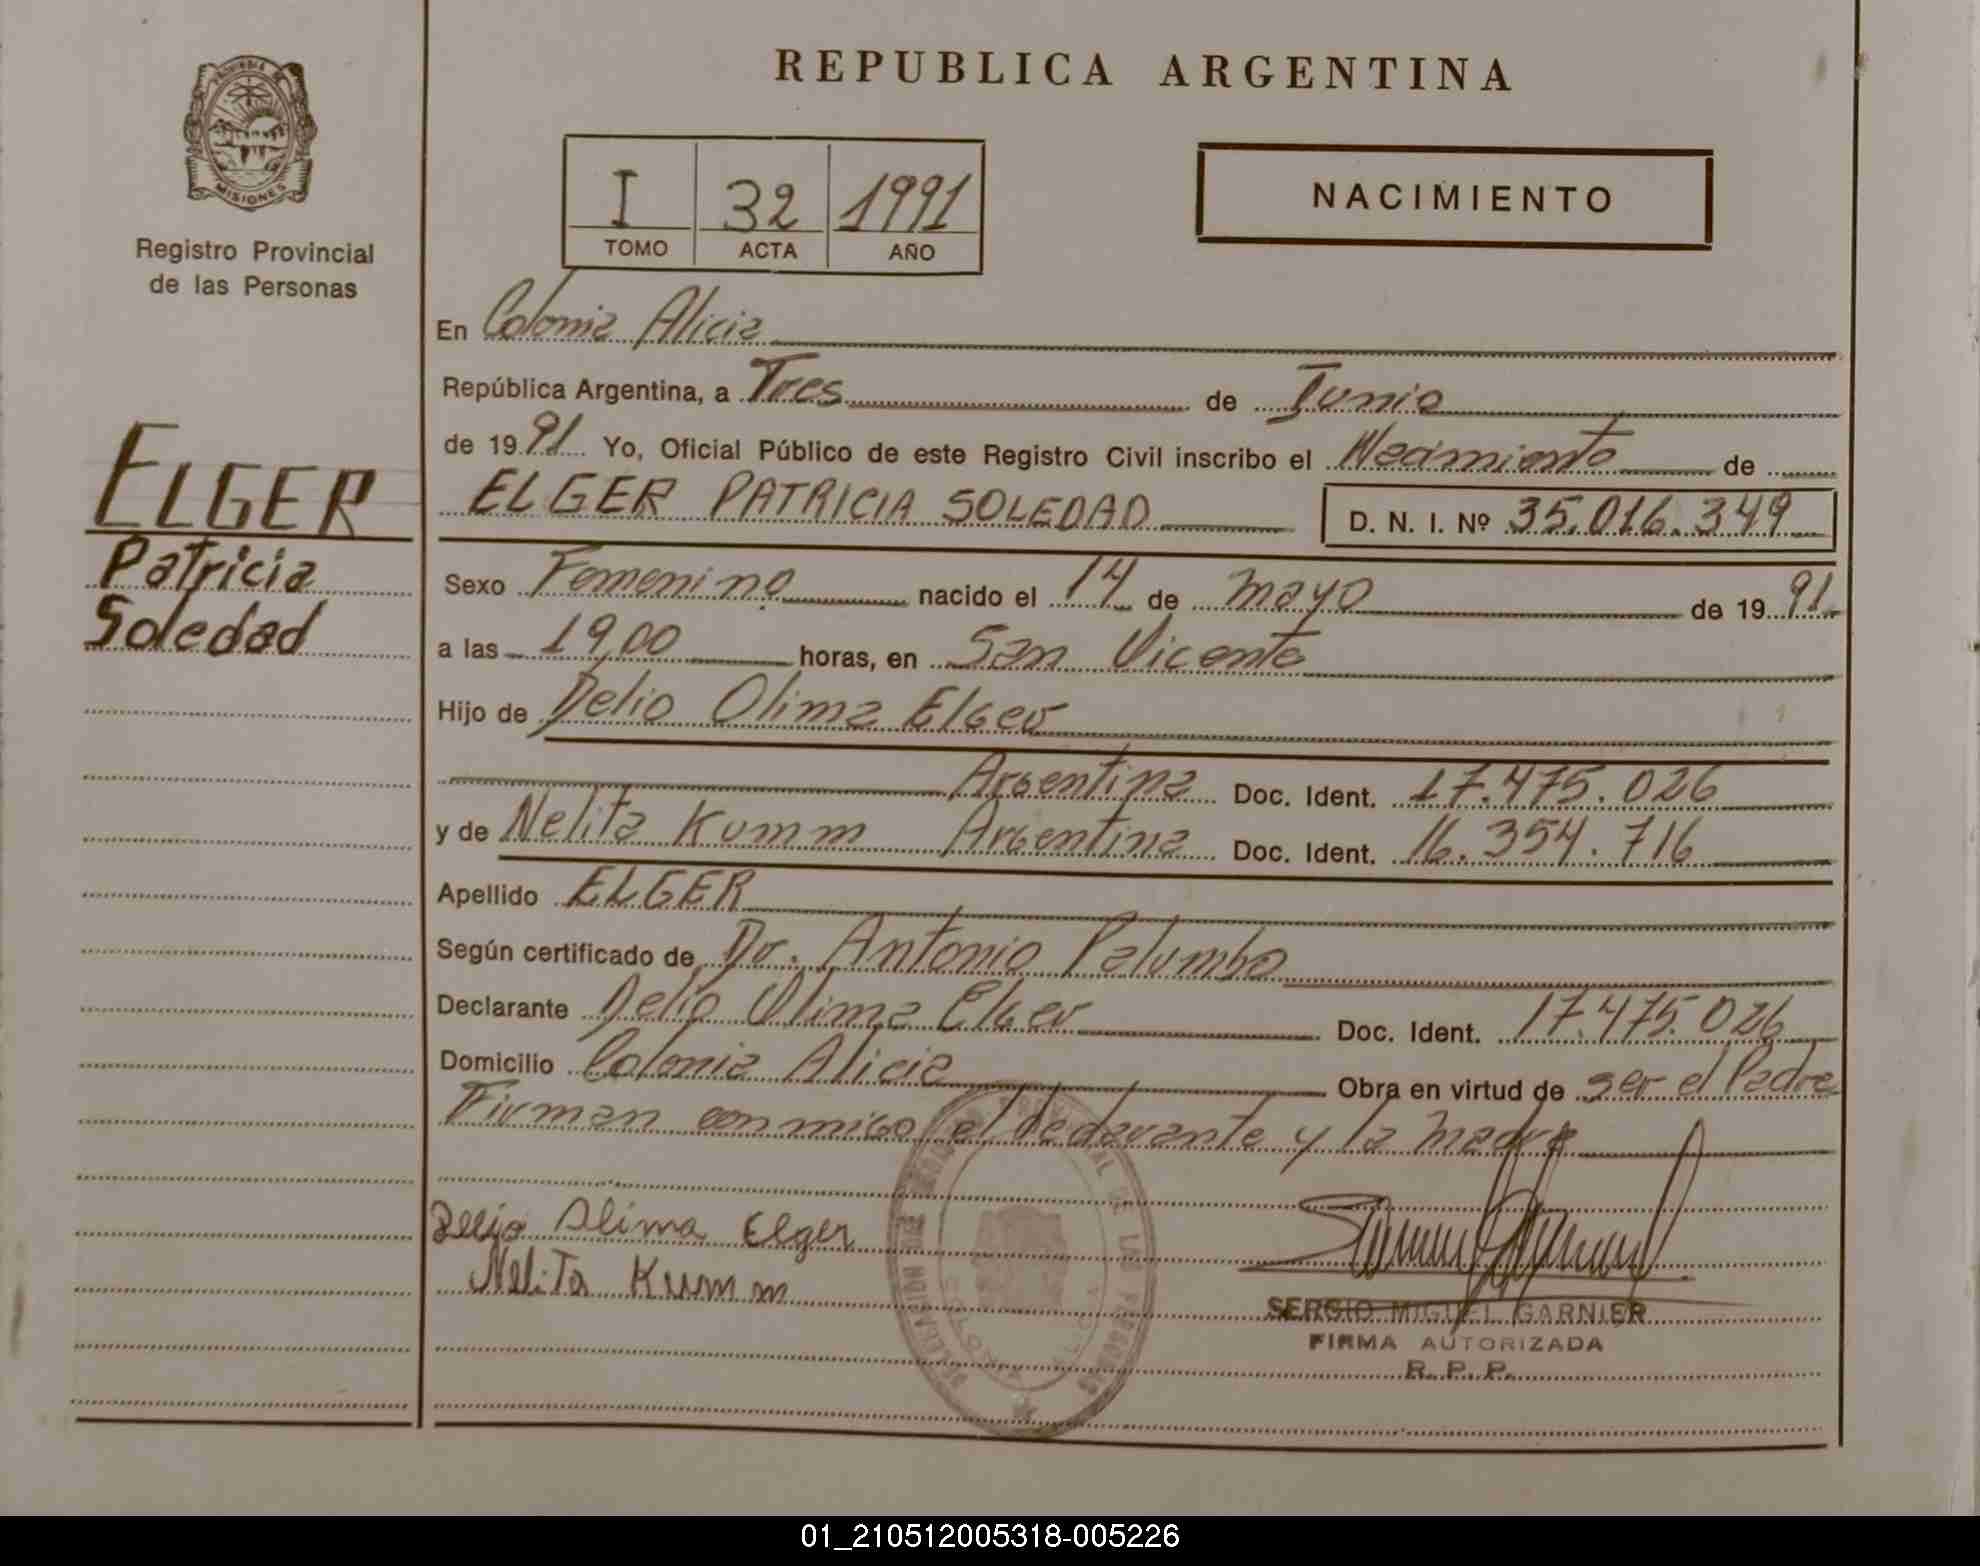 REPUBLICA ARGENTINA
PROVINCIA DE
MISIONES
Registro Provincial
de las Personas
I 32 1991
TOMO ACTA AÑO
NACIMIENTO
ELGER
Patricia
Soledad
En Colonia Alicia
República Argentina, a Tres de Junio
de 1991 Yo, Oficial Público de este Registro Civil inscribo el Nacimiento de
ELGER PATRICIA SOLEDAD D. N. I. Nº 35.016.349
Sexo Femenino nacido el 14 de mayo de 1991
a las 19,00 horas, en San Vicente
Hijo de Delio Olima Elger
Argentina Doc. Ident. 17.475.026
y de Nelita Kumm Argentina Doc. Ident. 16.354.716
Apellido ELGER
Según certificado de Dr. Antonio Palumbo
Declarante Delio Olima Elger Doc. Ident. 17.475.026
Domicilio Colonia Alicia Obra en virtud de ser el Padre
Firman conmigo el declarante y la madre
Delio Olima Elger
Nelita Kumm
SERGIO MIGUEL GARNIER
FIRMA AUTORIZADA
R. P. P.
01_210512005318-005226